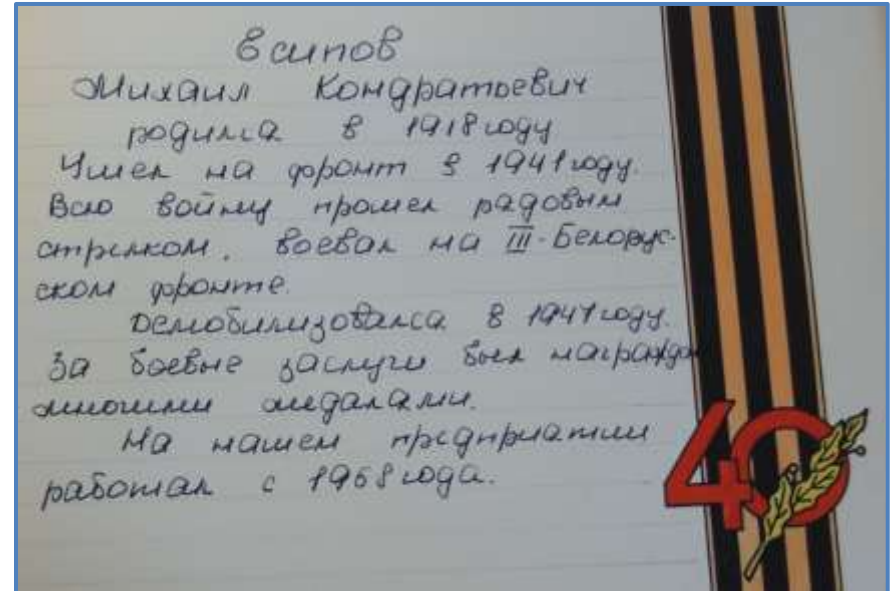 Есипов
Михаил Кондратьевич
родился в 1918 году
Ушел на фронт в 1941 году.
Всю войну прошел рядовым
стрелком, воевал на III-Белорус-
ском фронте.
Демобилизовался в 1947 году.
За боевые заслуги был награжден
многими медалями.
На нашем предприятии
работал с 1968 года.
40